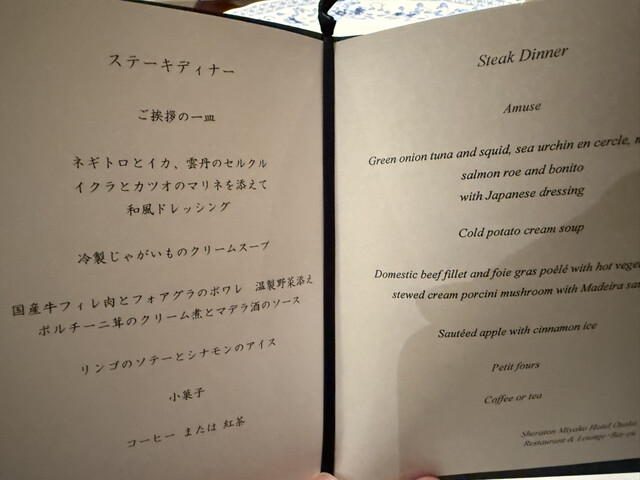 ステーキディナー
ご挨拶の一皿
ネギトロとイカ、雲丹のセルクル
イクラとカツオのマリネを添えて
和風ドレッシング
冷製じゃがいものクリームスープ
国産牛フィレ肉とフォアグラのポワレ 温製野菜添え
ポルチーニ茸のクリーム煮とマデラ酒のソース
リンゴのソテーとシナモンのアイス
小菓子
コーヒー または 紅茶
Steak Dinner
Amuse
Green onion tuna and squid, sea urchin en cercle,
salmon roe and bonito
with Japanese dressing
Cold potato cream soup
Domestic beef fillet and foie gras poêlé with hot
stewed cream porcini mushroom with Madeira
Sautéed apple with cinnamon ice
Petit fours
Coffee or tea
Sheraton Miyako Hotel Osaka
Restaurant & Lounge